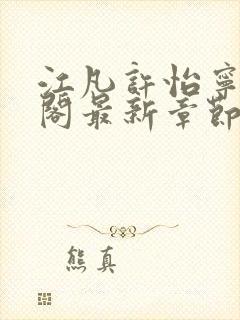 江凡許怡寧
閣最新章節
熊真